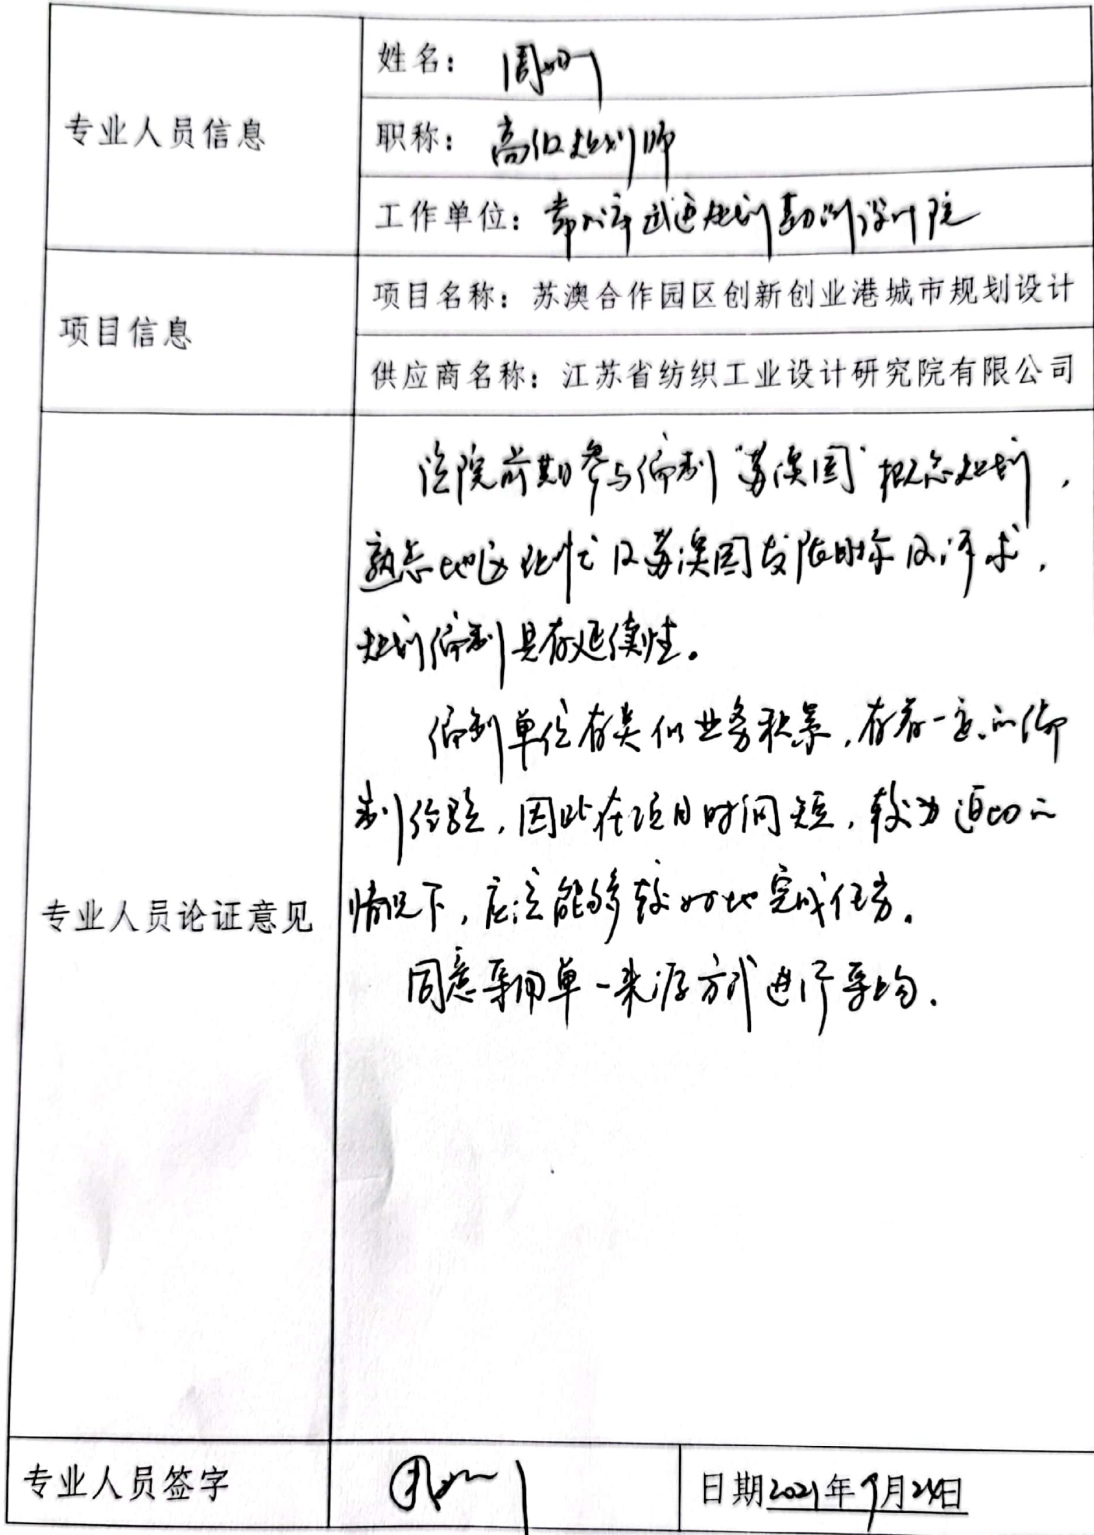 专业人员信息
姓名：周
职称：高级规划师
工作单位：常州市武进规划勘测设计院
项目信息
项目名称：苏澳合作园区创新创业港城市规划设计
供应商名称：江苏省纺织工业设计研究院有限公司
专业人员论证意见
该院前期参与编制“苏澳园”概念规划，
熟悉地区 及苏澳园发展目标及诉求，
规划编制具有延续性。
编制单位有类似业务积累，存有一定的编
制经验，因此在项目时间短，较为迫切的
情况下，应该能够较好地完成任务。
同意采用单一来源方式进行采购。
专业人员签字
周
日期2021年9月24日